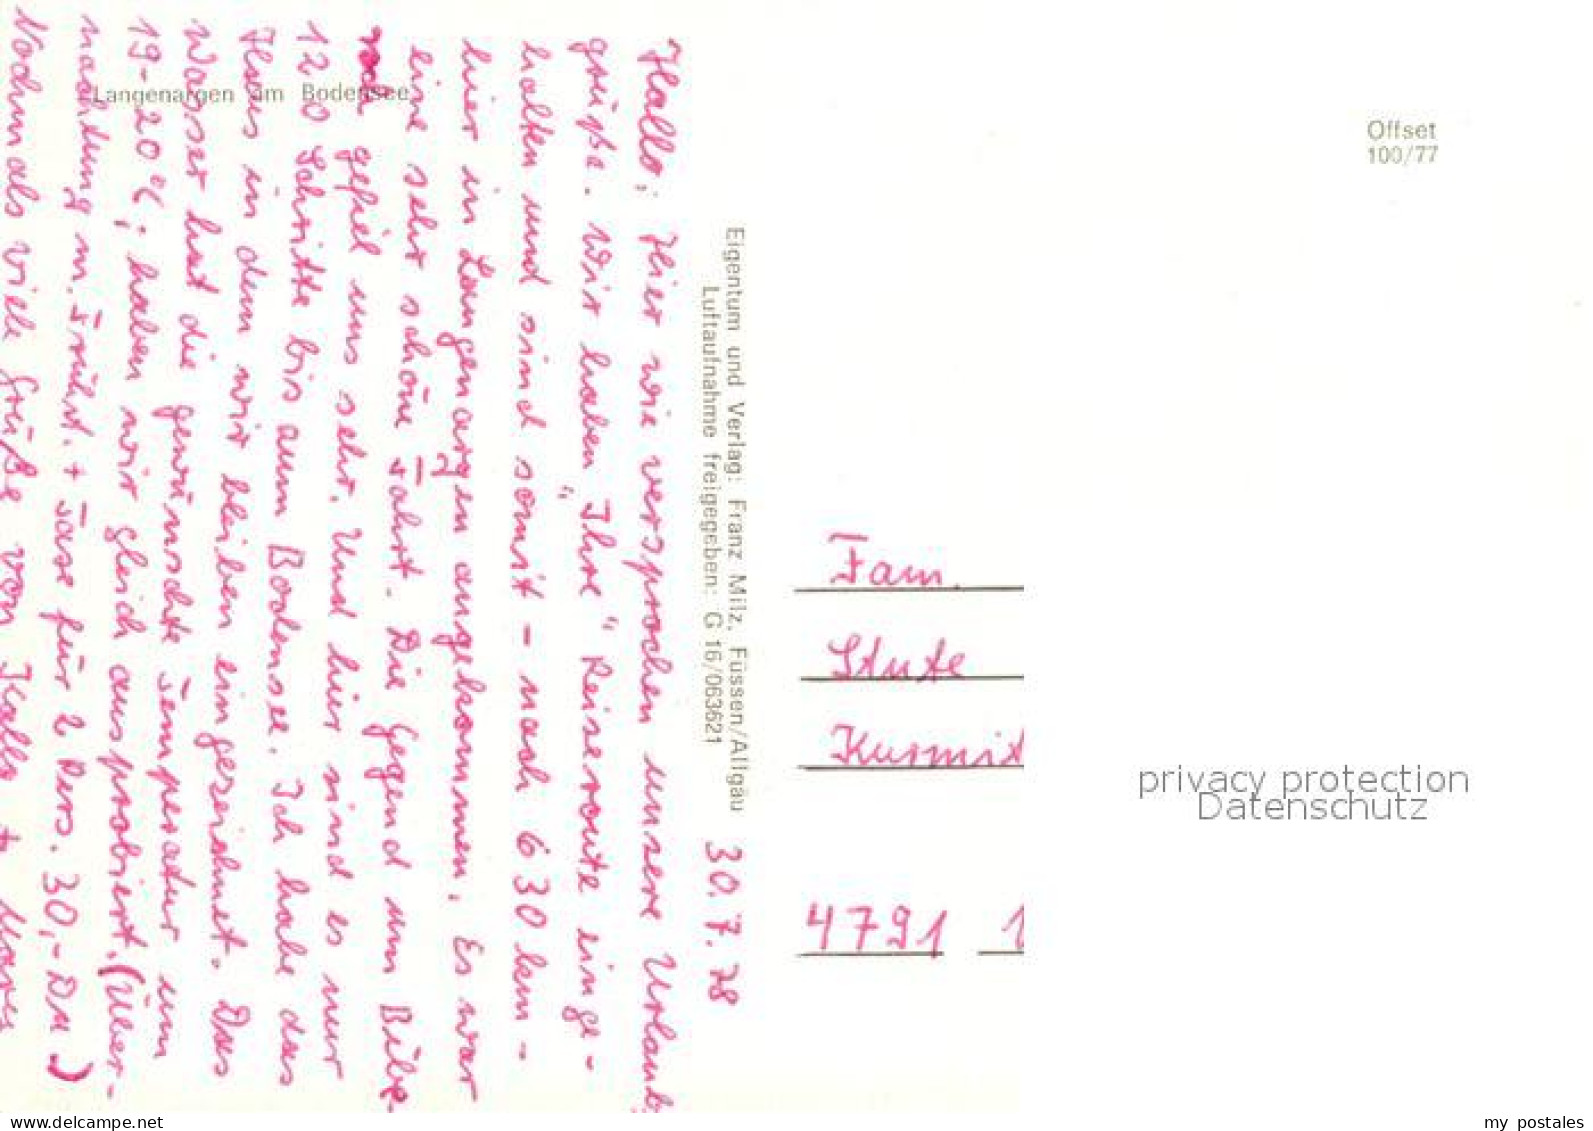 Langenargen am Bodensee
Offset
100/77
Eigentum und Verlag: Franz Milz, Füssen/Allgäu
Luftaufnahme freigegeben: G 16/063621
30.7.78
Hallo, Hier wie versprochen unsere Urlaubs
grüße. Wir haben "Ihre" Reiseroute einge-
halten und sind somit - nach 630 km -
hier in Langenargen angekommen. Es war
eine sehr schöne Fahrt. Die Gegend um Bibe-
rach gefiel uns sehr. Und hier sind es nur
120 Schritte bis zum Bodensee. Ich habe das
Haus in dem wir bleiben eingezeichnet. Das
Wasser hat die gewünschte Temperatur um
19-20°C, haben wir gleich ausprobiert. (Über-
nachtung m. Frühst. + Tase für 2 Pers. 30,- DM)
Nochmals viele Grüße von Kallo +
Fam.
Stute
Kurmit
4791
privacy protection
Datenschutz
www.delcampe.net
my_postales